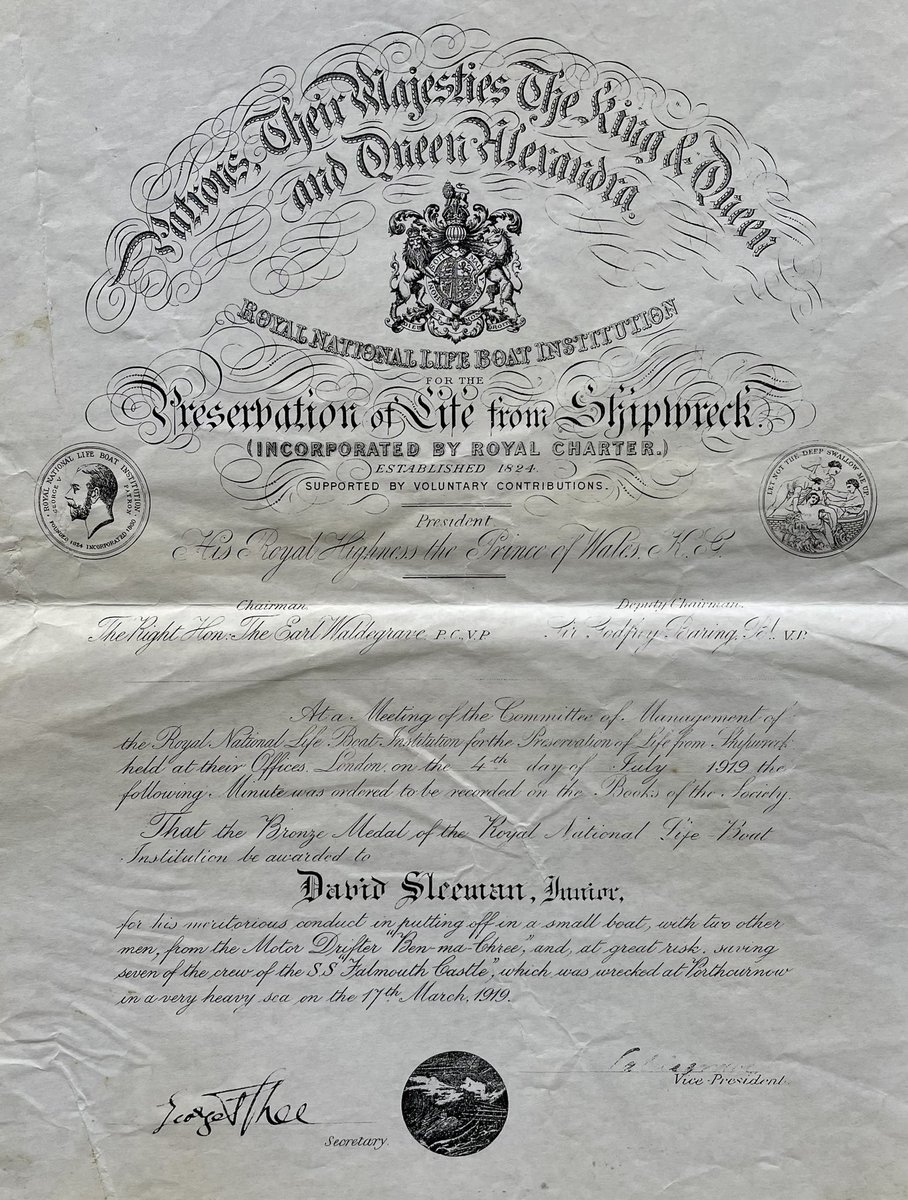 Patrons, Their Majesties The King & Queen
and Queen Alexandra.
ROYAL NATIONAL LIFE BOAT INSTITUTION
FOR THE
Preservation of Life from Shipwreck.
(INCORPORATED BY ROYAL CHARTER.)
ESTABLISHED 1824.
SUPPORTED BY VOLUNTARY CONTRIBUTIONS.
ROYAL NATIONAL LIFE BOAT INSTITUTION
GEORGE V PATRON
FOUNDED 1824 INCORPORATED 1860
LET NOT THE DEEP SWALLOW ME UP
President.
His Royal Highness the Prince of Wales, K. G.
Chairman. Deputy Chairman.
The Right Hon: The Earl Waldegrave, P.C., V.P. Sir Godfrey Baring, Bt. V.P.
At a Meeting of the Committee of Management of
the Royal National Life Boat Institution for the Preservation of Life from Shipwreck
held at their Offices, London, on the 4th day of July 1919 the
following Minute was ordered to be recorded on the Books of the Society.
That the Bronze Medal of the Royal National Life-Boat
Institution be awarded to
David Sleeman, Junior,
for his meritorious conduct in putting off in a small boat, with two other
men, from the Motor Drifter "Ben-ma-Chree", and, at great risk, saving
seven of the crew of the S.S "Falmouth Castle", which was wrecked at Porthcurnow
in a very heavy sea on the 17th March, 1919.
Vice-President.
George F Shee
Secretary.